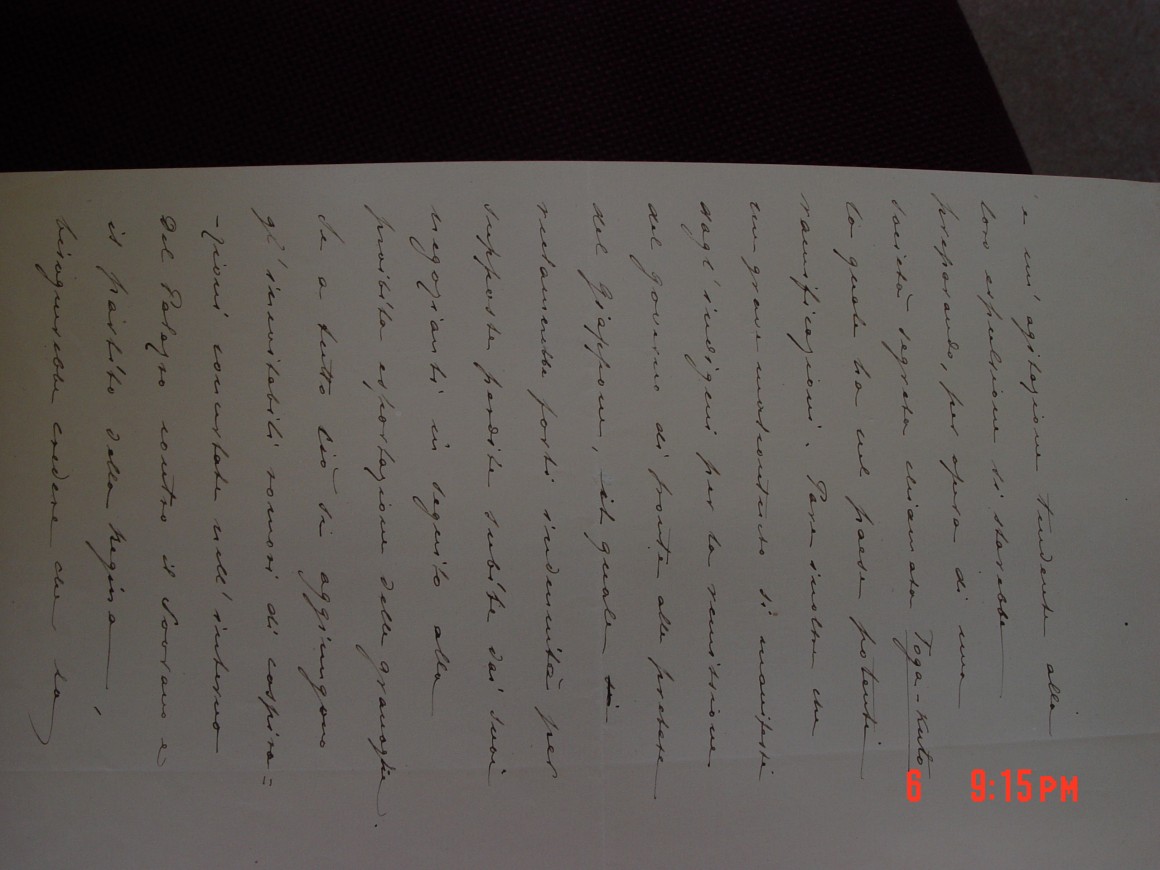 e un' agitazione tendente alla
loro espulsione si starebbe
preparando, per opera di una
società segreta chiamata Toga-Kuto
la quale ha nel paese potenti
ramificazioni. Pare inoltre che
un grave malcontento si manifesti
dagl' indigeni per la remissione
del governo di fronte alle pretese
del Giappone, il quale
recisamente porti indennità per
supposte perdite subite dai suoi
negozianti in seguito alla
proibita esportazione delle granaglie.
Se a tutto ciò si aggiungono
gl' inevitabili rumori di cospira=
-zioni comentate nell' interno
del Palazzo contro il Sovrano e
il partito della Regina,
bisognerebbe credere che la
6 9:15PM